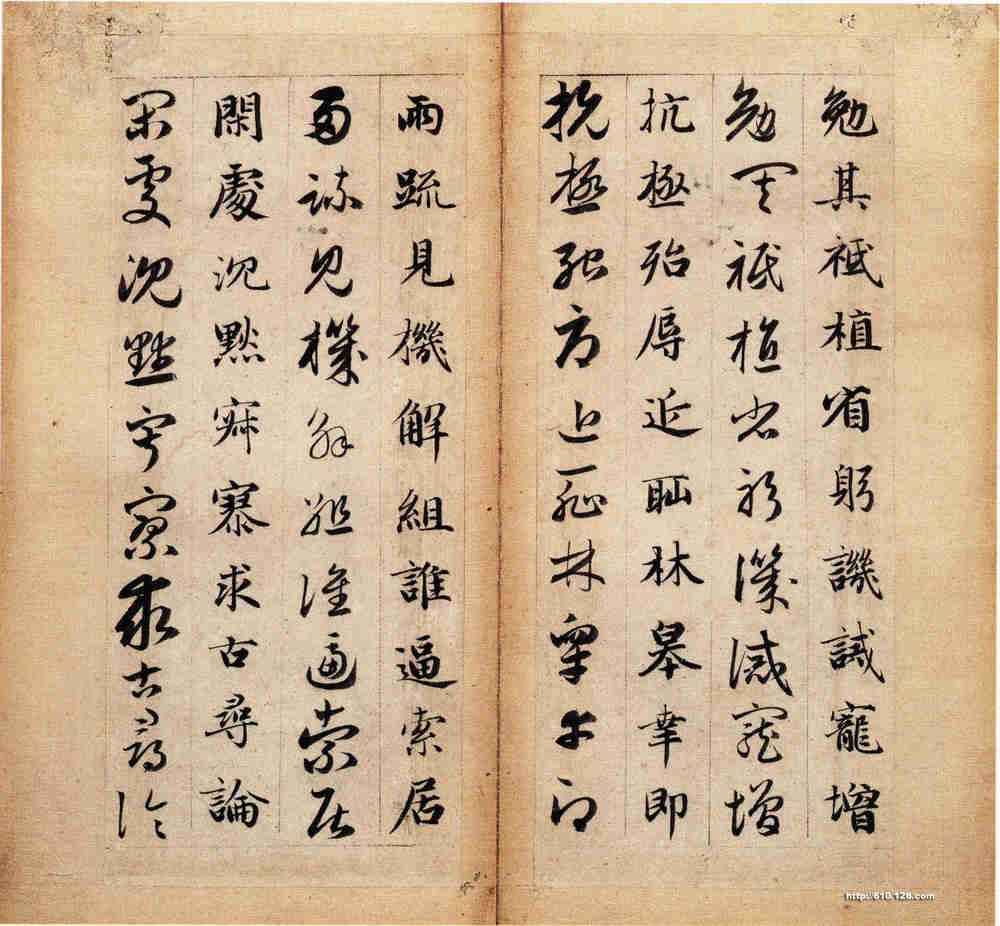 勉其祗植省躬譏誡寵增
勉其祗植省躬譏誡寵增
抗極殆辱近恥林皋幸即
抗極殆辱近恥林皋幸即
兩疏見機解組誰逼索居
兩疏見機解組誰逼索居
閑處沉默寂寥求古尋論
閑處沉默寂寥求古尋論
http://610.126.com